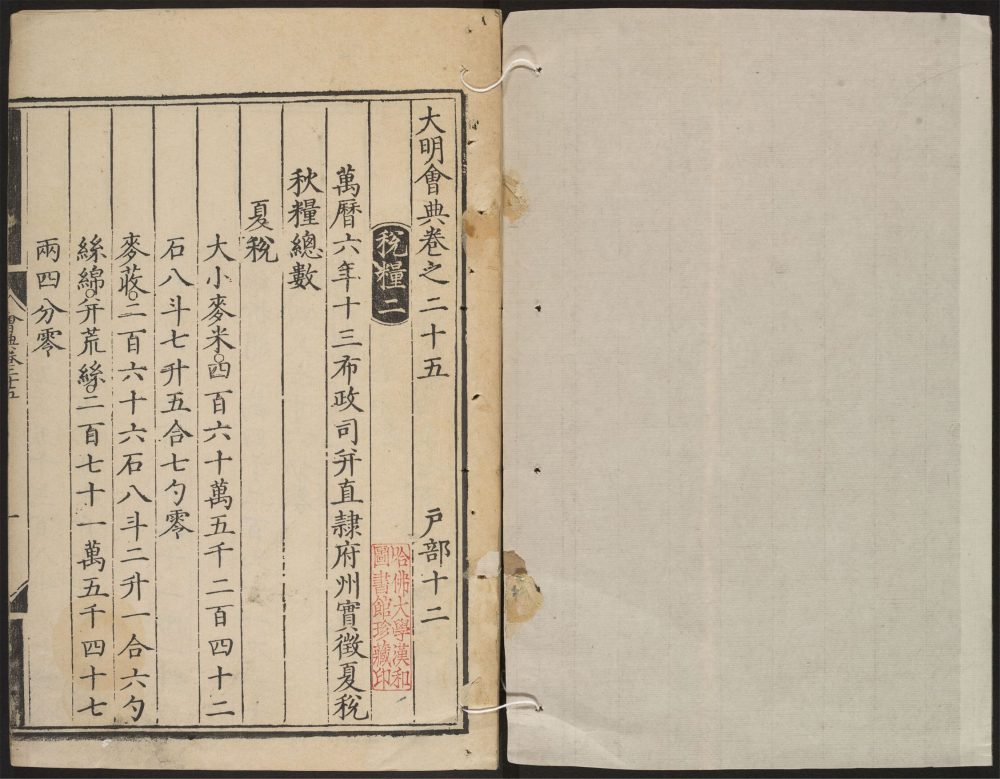 大明會典卷之二十五 戶部十二
稅糧二
哈佛大學漢和
圖書館珍藏印
萬曆六年十三布政司并直隸府州實徵夏稅
秋糧總數
夏稅
大小麥米○四百六十萬五千二百四十二
石八斗七升五合七勺零
麥荍○二百六十六石八斗二升一合六勺
絲綿○并荒絲○二百七十一萬五千四十七
兩四分零
會典卷二十五
一